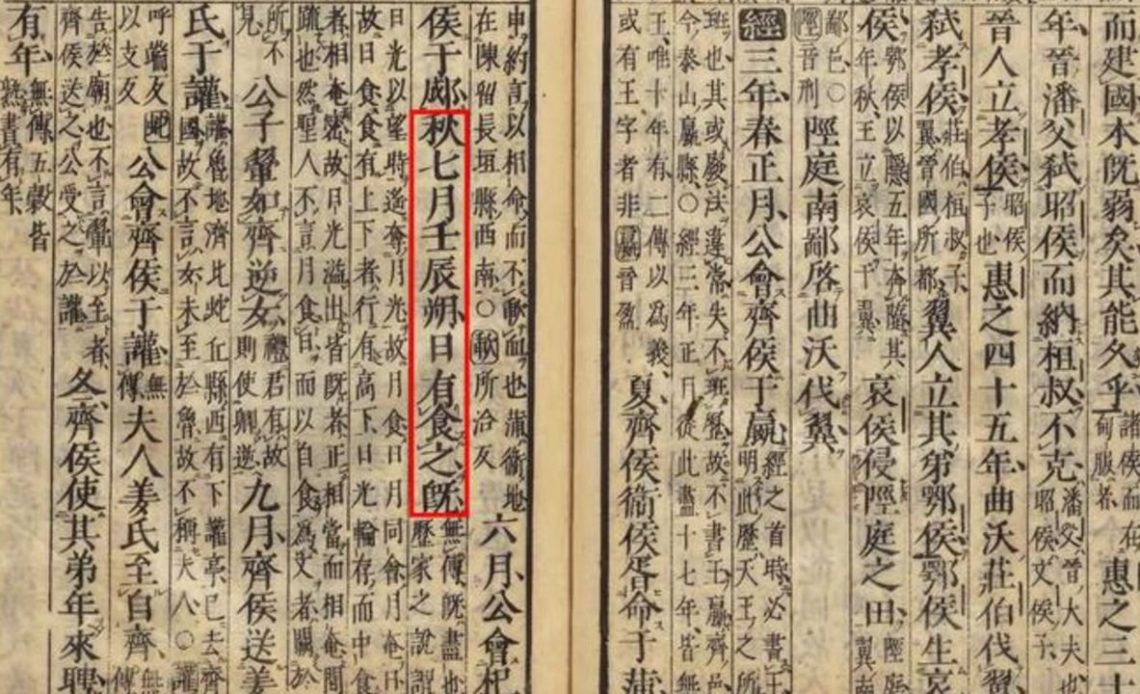 而建國本旣弱矣其能久乎諸侯而在甸服者惠之三十
年晉潘父弒昭侯而納桓叔不克潘父晉大夫也昭侯文侯子
晉人立孝侯昭侯子也惠之四十五年曲沃莊伯伐翼
弒孝侯莊伯桓叔子翼晉國所都翼人立其弟鄂侯鄂侯生哀
侯鄂侯以隱五年奔隨其年秋王立哀侯于翼哀侯侵陘庭之田陘庭翼南
鄙邑○陘音刑陘庭南鄙啓曲沃伐翼
經三年春正月公會齊侯于嬴經之首時必書明此歷天王之所
班也其或廢法違常失不班歷故不書王嬴齊邑今泰山嬴縣○經三年正月從此盡十七年皆
王唯十年有二傳以為義或有王字者非嬴音盈夏齊侯衞侯胥命于蒲
申約言以相命而不歃血也蒲衞地在陳留長垣縣西南○歃所洽反六月公會杞
侯于郕秋七月壬辰朔日有食之旣無傳旣盡也歷家之說謂
日光以望時遙奪月光故月食日月同會月奄日故日食食有上下者行有高下日光輪存而中食
者相奄密故日光溢出皆旣者正相當而相奄間疏也然聖人不言月食日而以自食為文者闕於
所不見公子翬如齊逆女禮君有故則使卿逆九月齊侯送姜
氏于讙讙魯地濟北蛇丘縣西有下讙亭已去齊國故不言女未至於魯故不稱夫人○讙
呼端反蛇以支反公會齊侯于讙無傳夫人姜氏至自齊無傳
告於廟也不言翬以至者齊侯送之公受之於讙冬齊侯使其弟年來聘
有年無傳五穀皆熟書有年